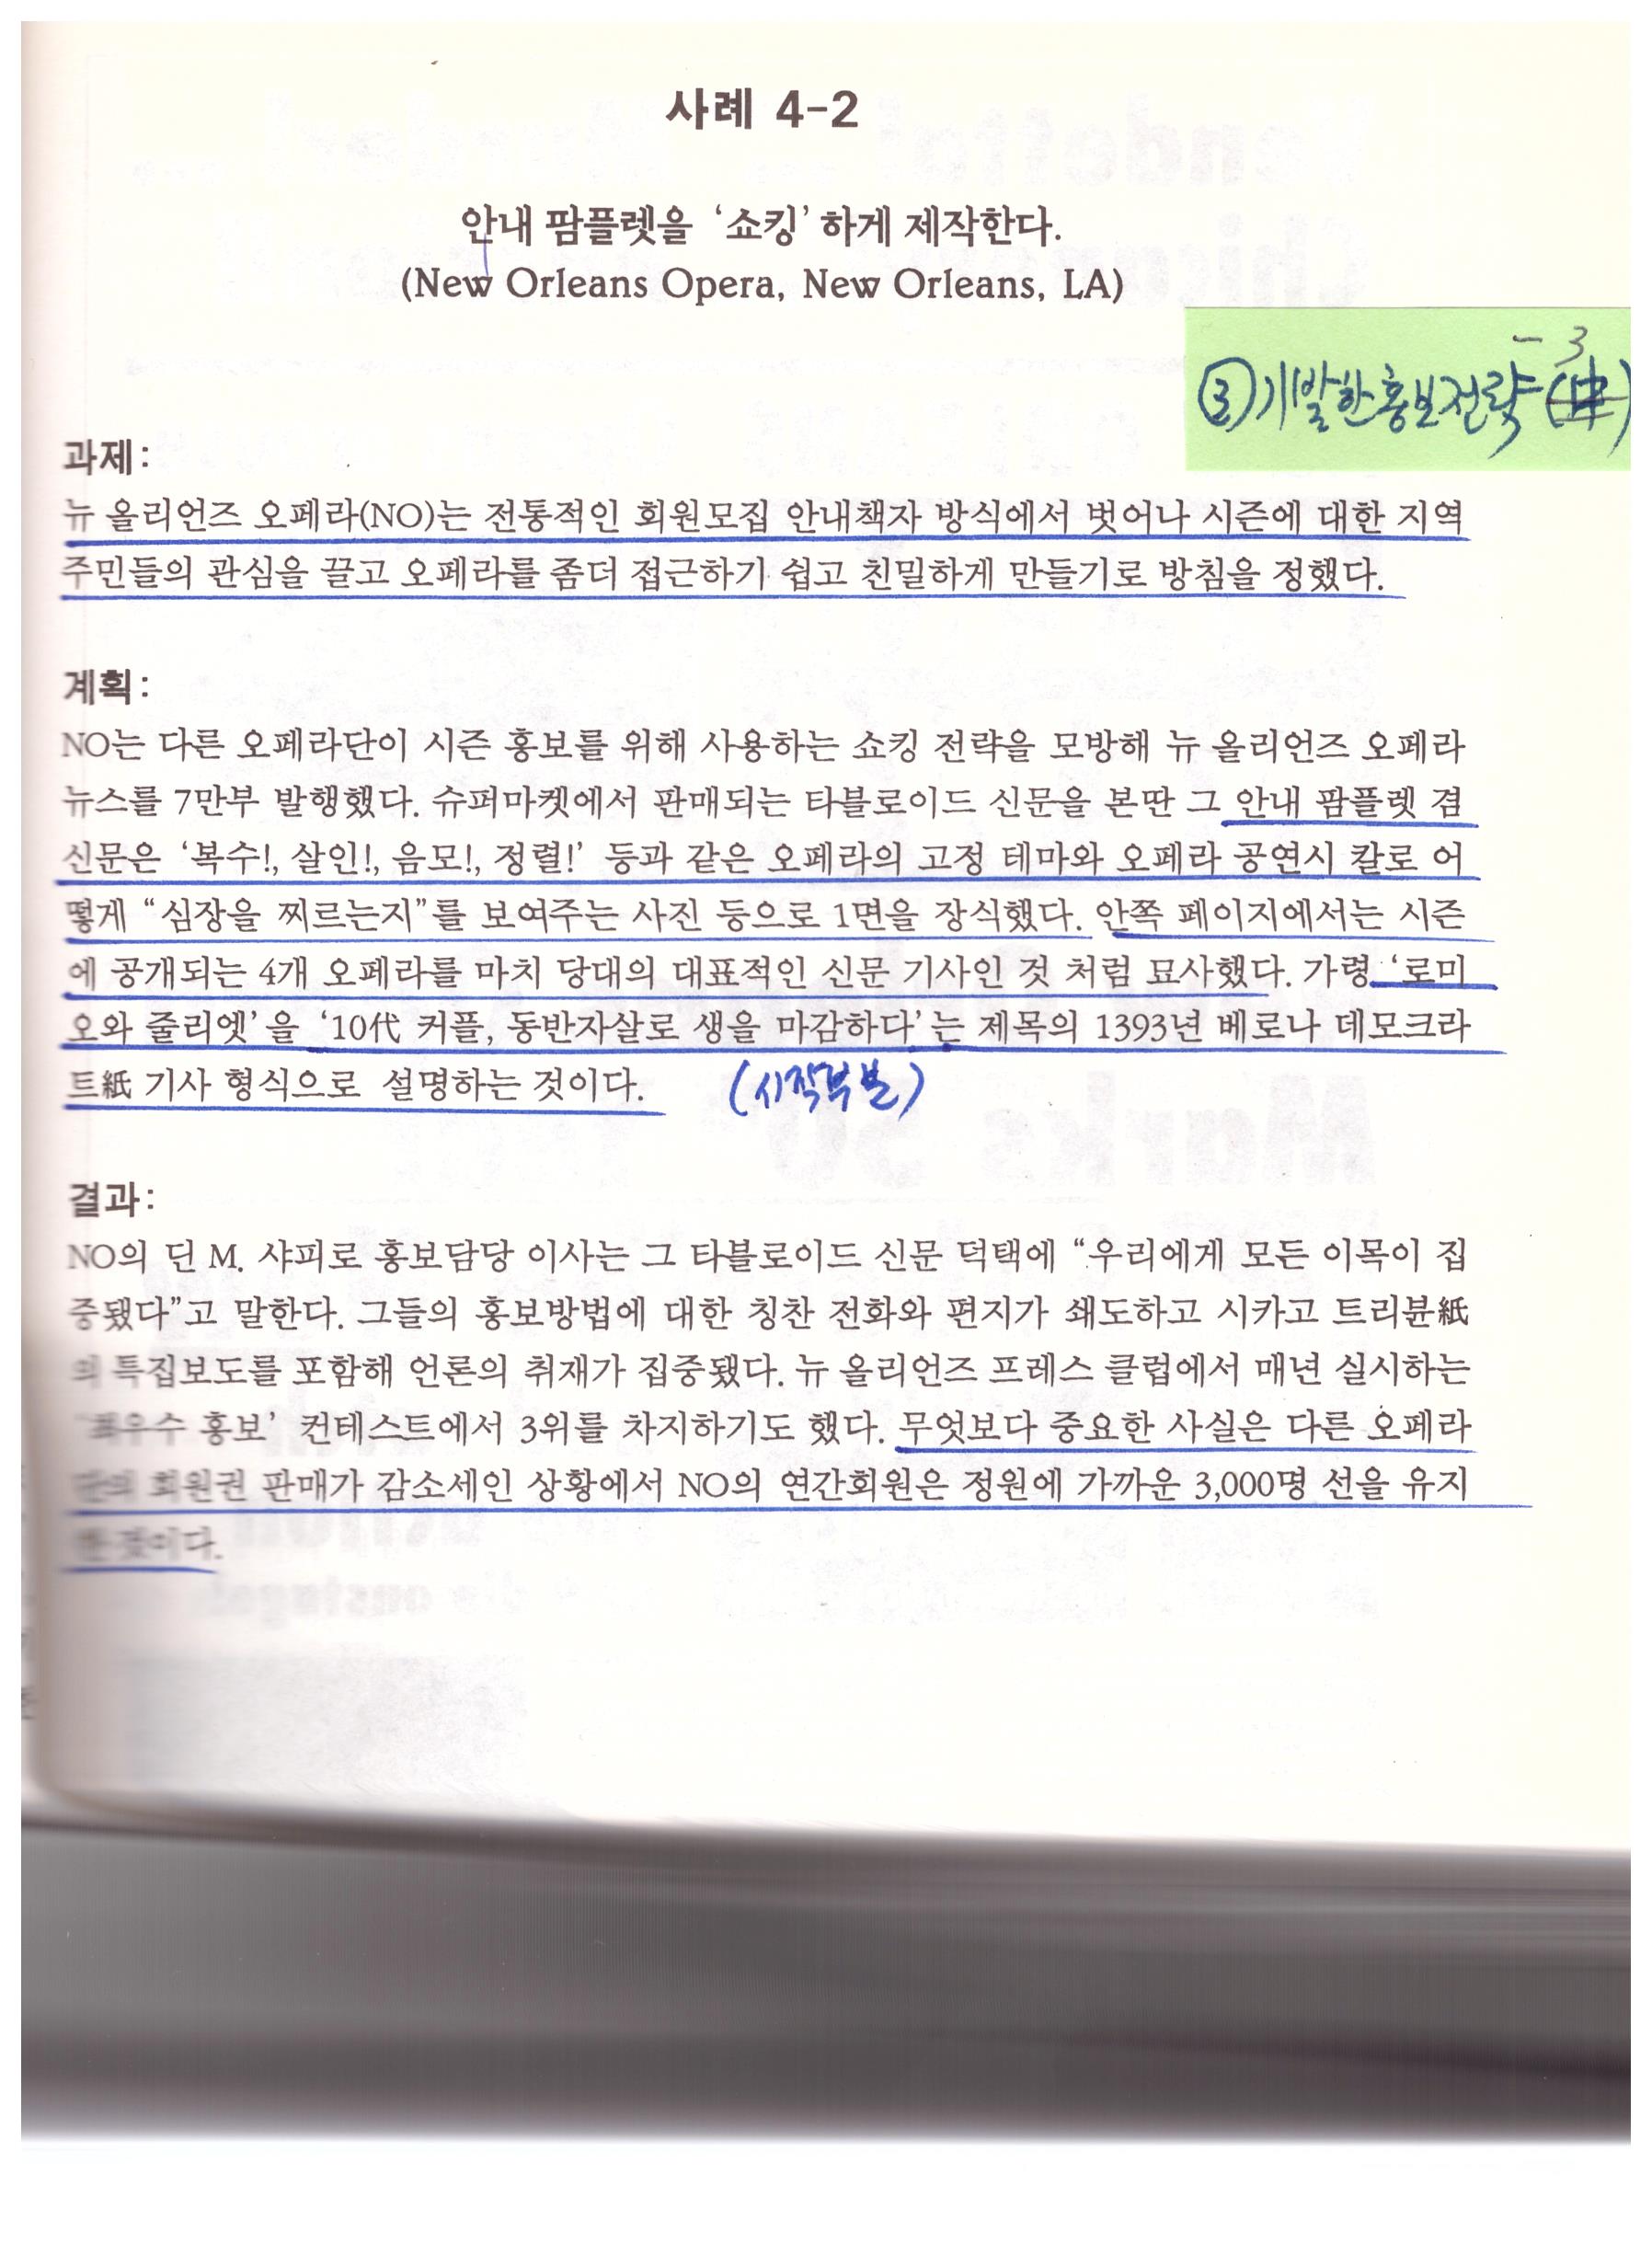 사례 4-2
안내 팜플렛을 ‘쇼킹’하게 제작한다.
(New Orleans Opera, New Orleans, LA)
- 3
③기발한홍보전략(中)
과제:
뉴 올리언즈 오페라(NO)는 전통적인 회원모집 안내책자 방식에서 벗어나 시즌에 대한 지역
주민들의 관심을 끌고 오페라를 좀더 접근하기 쉽고 친밀하게 만들기로 방침을 정했다.
계획:
NO는 다른 오페라단이 시즌 홍보를 위해 사용하는 쇼킹 전략을 모방해 뉴 올리언즈 오페라
뉴스를 7만부 발행했다. 슈퍼마켓에서 판매되는 타블로이드 신문을 본딴 그 안내 팜플렛 겸
신문은 ‘복수!, 살인!, 음모!, 정렬!’ 등과 같은 오페라의 고정 테마와 오페라 공연시 칼로 어
떻게 “심장을 찌르는지”를 보여주는 사진 등으로 1면을 장식했다. 안쪽 페이지에서는 시즌
에 공개되는 4개 오페라를 마치 당대의 대표적인 신문 기사인 것 처럼 묘사했다. 가령 ‘로미
오와 줄리엣’을 ‘10代 커플, 동반자살로 생을 마감하다’는 제목의 1393년 베로나 데모크라
트紙 기사 형식으로 설명하는 것이다. (시작부분)
결과:
NO의 딘 M. 샤피로 홍보담당 이사는 그 타블로이드 신문 덕택에 “우리에게 모든 이목이 집
중됐다”고 말한다. 그들의 홍보방법에 대한 칭찬 전화와 편지가 쇄도하고 시카고 트리뷴紙
의 특집보도를 포함해 언론의 취재가 집중됐다. 뉴 올리언즈 프레스 클럽에서 매년 실시하는
‘최우수 홍보’ 컨테스트에서 3위를 차지하기도 했다. 무엇보다 중요한 사실은 다른 오페라
단의 회원권 판매가 감소세인 상황에서 NO의 연간회원은 정원에 가까운 3,000명 선을 유지
한 것이다.